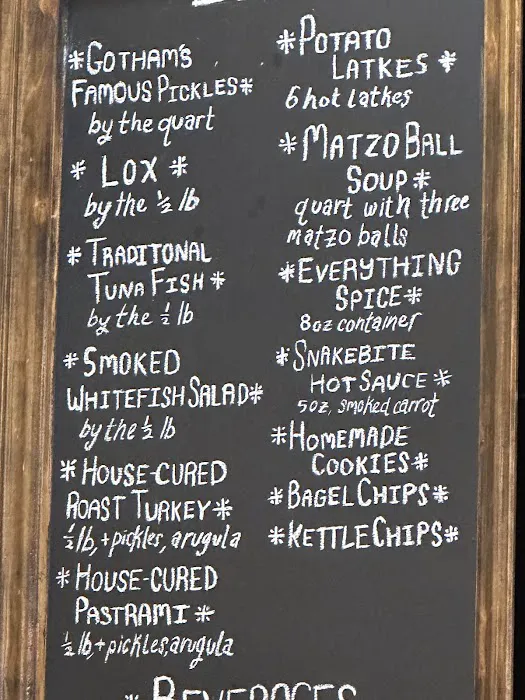 *GOTHAM'S
FAMOUS PICKLES*
by the quart
* LOX *
by the ½ lb
*TRADITONAL
TUNA FISH*
by the ½ lb
*SMOKED
WHITEFISH SALAD*
by the ½ lb
*HOUSE-CURED
ROAST TURKEY*
½ lb, + pickles, arugula
*HOUSE-CURED
PASTRAMI *
½ lb + pickles, arugula
*POTATO
LATKES *
6 hot latkes
*MATZO BALL
SOUP*
quart with three
matzo balls
*EVERYTHING
SPICE*
8oz container
*SNAKEBITE
HOT SAUCE *
5oz, smoked carrot
*HOMEMADE
COOKIES*
*BAGEL CHIPS*
*KETTLE CHIPS*
* BEVERAGES